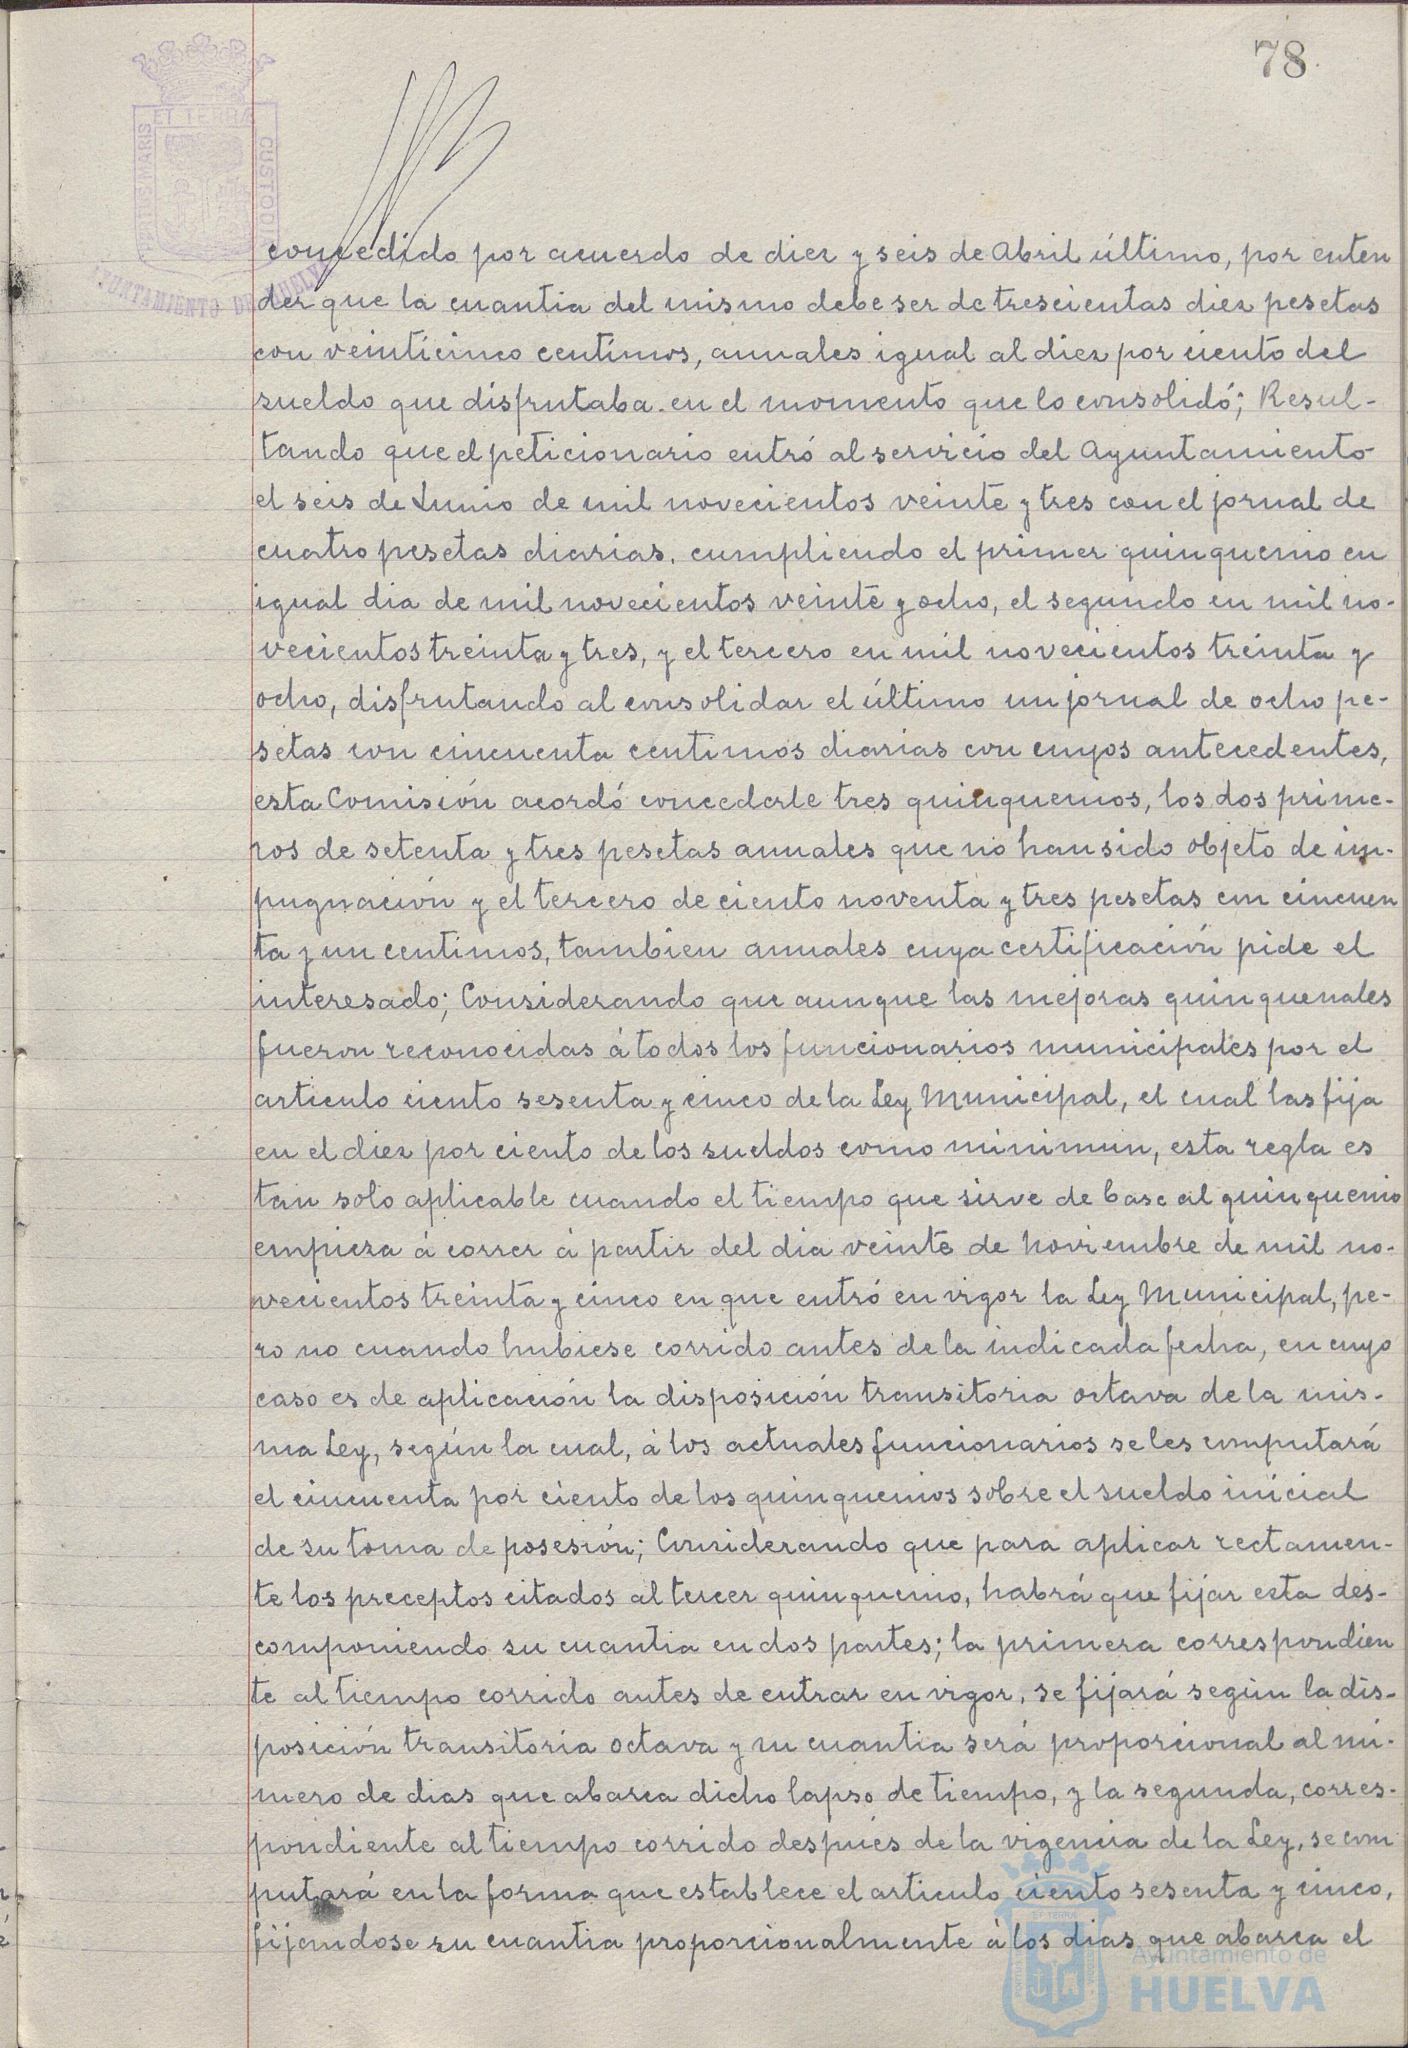 78.
ET TERRÆ
PORTUS MARIS
CUSTOD
AYUNTAMIENTO DE HUELVA
concedido por acuerdo de diez y seis de Abril último, por enten
der que la cuantia del mismo debe ser de trescientas diez pesetas
con veinticinco centimos, anuales igual al diez por ciento del
sueldo que disfrutaba en el momento que lo consolidó; Resul-
tando que el peticionario entró al servicio del Ayuntamiento
el seis de Junio de mil novecientos veinte y tres con el jornal de
cuatro pesetas diarias, cumpliendo el primer quinquenio en
igual dia de mil novecientos veinte y ocho, el segundo en mil no-
vecientos treinta y tres, y el tercero en mil novecientos treinta y
ocho, disfrutando al consolidar el último un jornal de ocho pe-
setas con cincuenta centimos diarias con cuyos antecedentes,
esta Comisión acordó concederle tres quinquenios, los dos prime-
ros de setenta y tres pesetas anuales que no han sido objeto de im-
pugnación y el tercero de ciento noventa y tres pesetas con cincuen
ta y un centimos, tambien anuales cuya certificación pide el
interesado; Considerando que aunque las mejoras quinquenales
fueron reconocidas á todos los funcionarios municipales por el
articulo ciento sesenta y cinco de la Ley Municipal, el cual las fija
en el diez por ciento de los sueldos como minimun, esta regla es
tan solo aplicable cuando el tiempo que sirve de base al quinquenio
empieza á correr á partir del dia veinte de Noviembre de mil no-
vecientos treinta y cinco en que entró en vigor la Ley Municipal, pe-
ro no cuando hubiese corrido antes de la indicada fecha, en cuyo
caso es de aplicación la disposición transitoria octava de la mis-
ma Ley, según la cual, á los actuales funcionarios se les computará
el cincuenta por ciento de los quinquenios sobre el sueldo inicial
de su toma de posesión; Considerando que para aplicar rectamen-
te los preceptos citados al tercer quinquenio, habrá que fijar esta des-
componiendo su cuantia en dos partes; la primera correspondien
te al tiempo corrido antes de entrar en vigor, se fijará según la dis-
posición transitoria octava y su cuantia será proporcional al nú-
mero de dias que abarca dicho lapso de tiempo, y la segunda, corres-
pondiente al tiempo corrido después de la vigencia de la Ley, se com
putará en la forma que establece el articulo ciento sesenta y cinco,
fijandose su cuantia proporcionalmente á los dias que abarca el
Ayuntamiento de
HUELVA